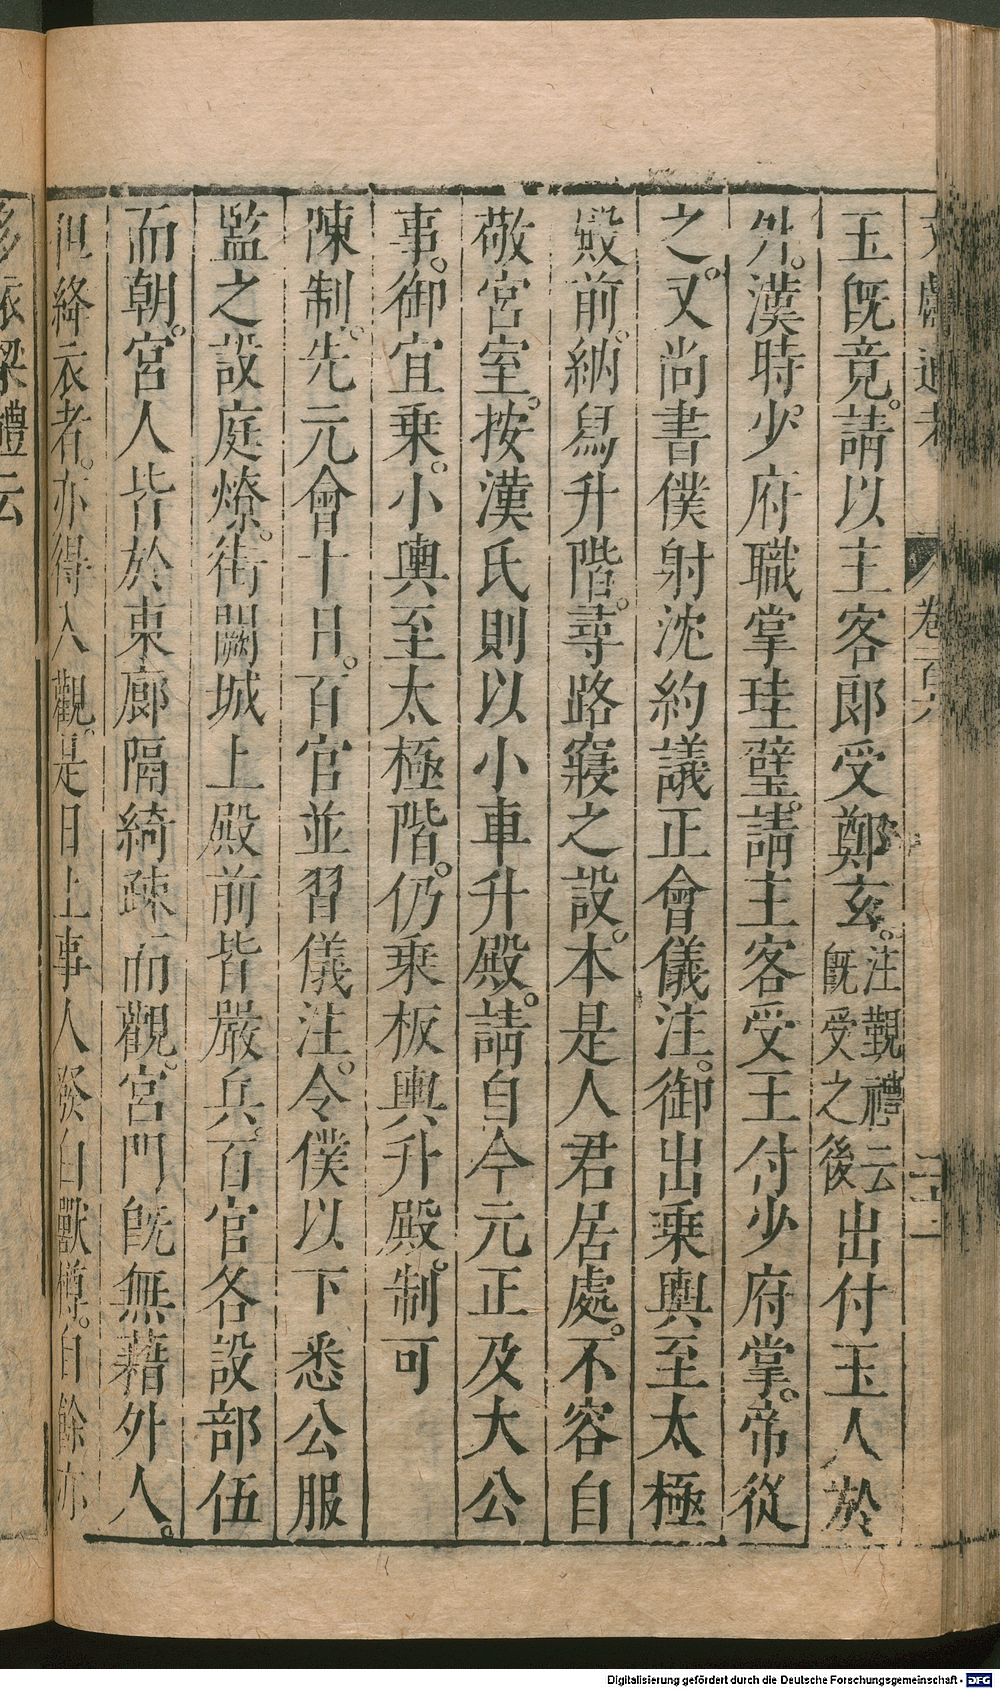 文獻通考 卷百六
玉既竟。請以主客郎受鄭玄。注覲禮云既受之後出付玉人於
外。漢時少府職掌珪璧。請主客受王付少府掌。帝從
之。又尚書僕射沈約議正會儀注。御出乘輿至太極
殿前。納舄升階。尋路寢之設。本是人君居處。不容自
敬宮室。按漢氏則以小車升殿。請自今元正及大公
事。御宜乘小輿至太極階。仍乘板輿升殿。制可
陳制。先元會十日。百官並習儀注。令僕以下悉公服
監之設庭燎。街闕城上殿前皆嚴兵。百官各設部伍
而朝。宮人皆於東廊隔綺疎而觀。宮門既無藉外人。
但絳衣者。亦得入觀。是日上事人發白獸樽。自餘亦
多依梁禮云
Digitalisierung gefördert durch die Deutsche Forschungsgemeinschaft - DFG